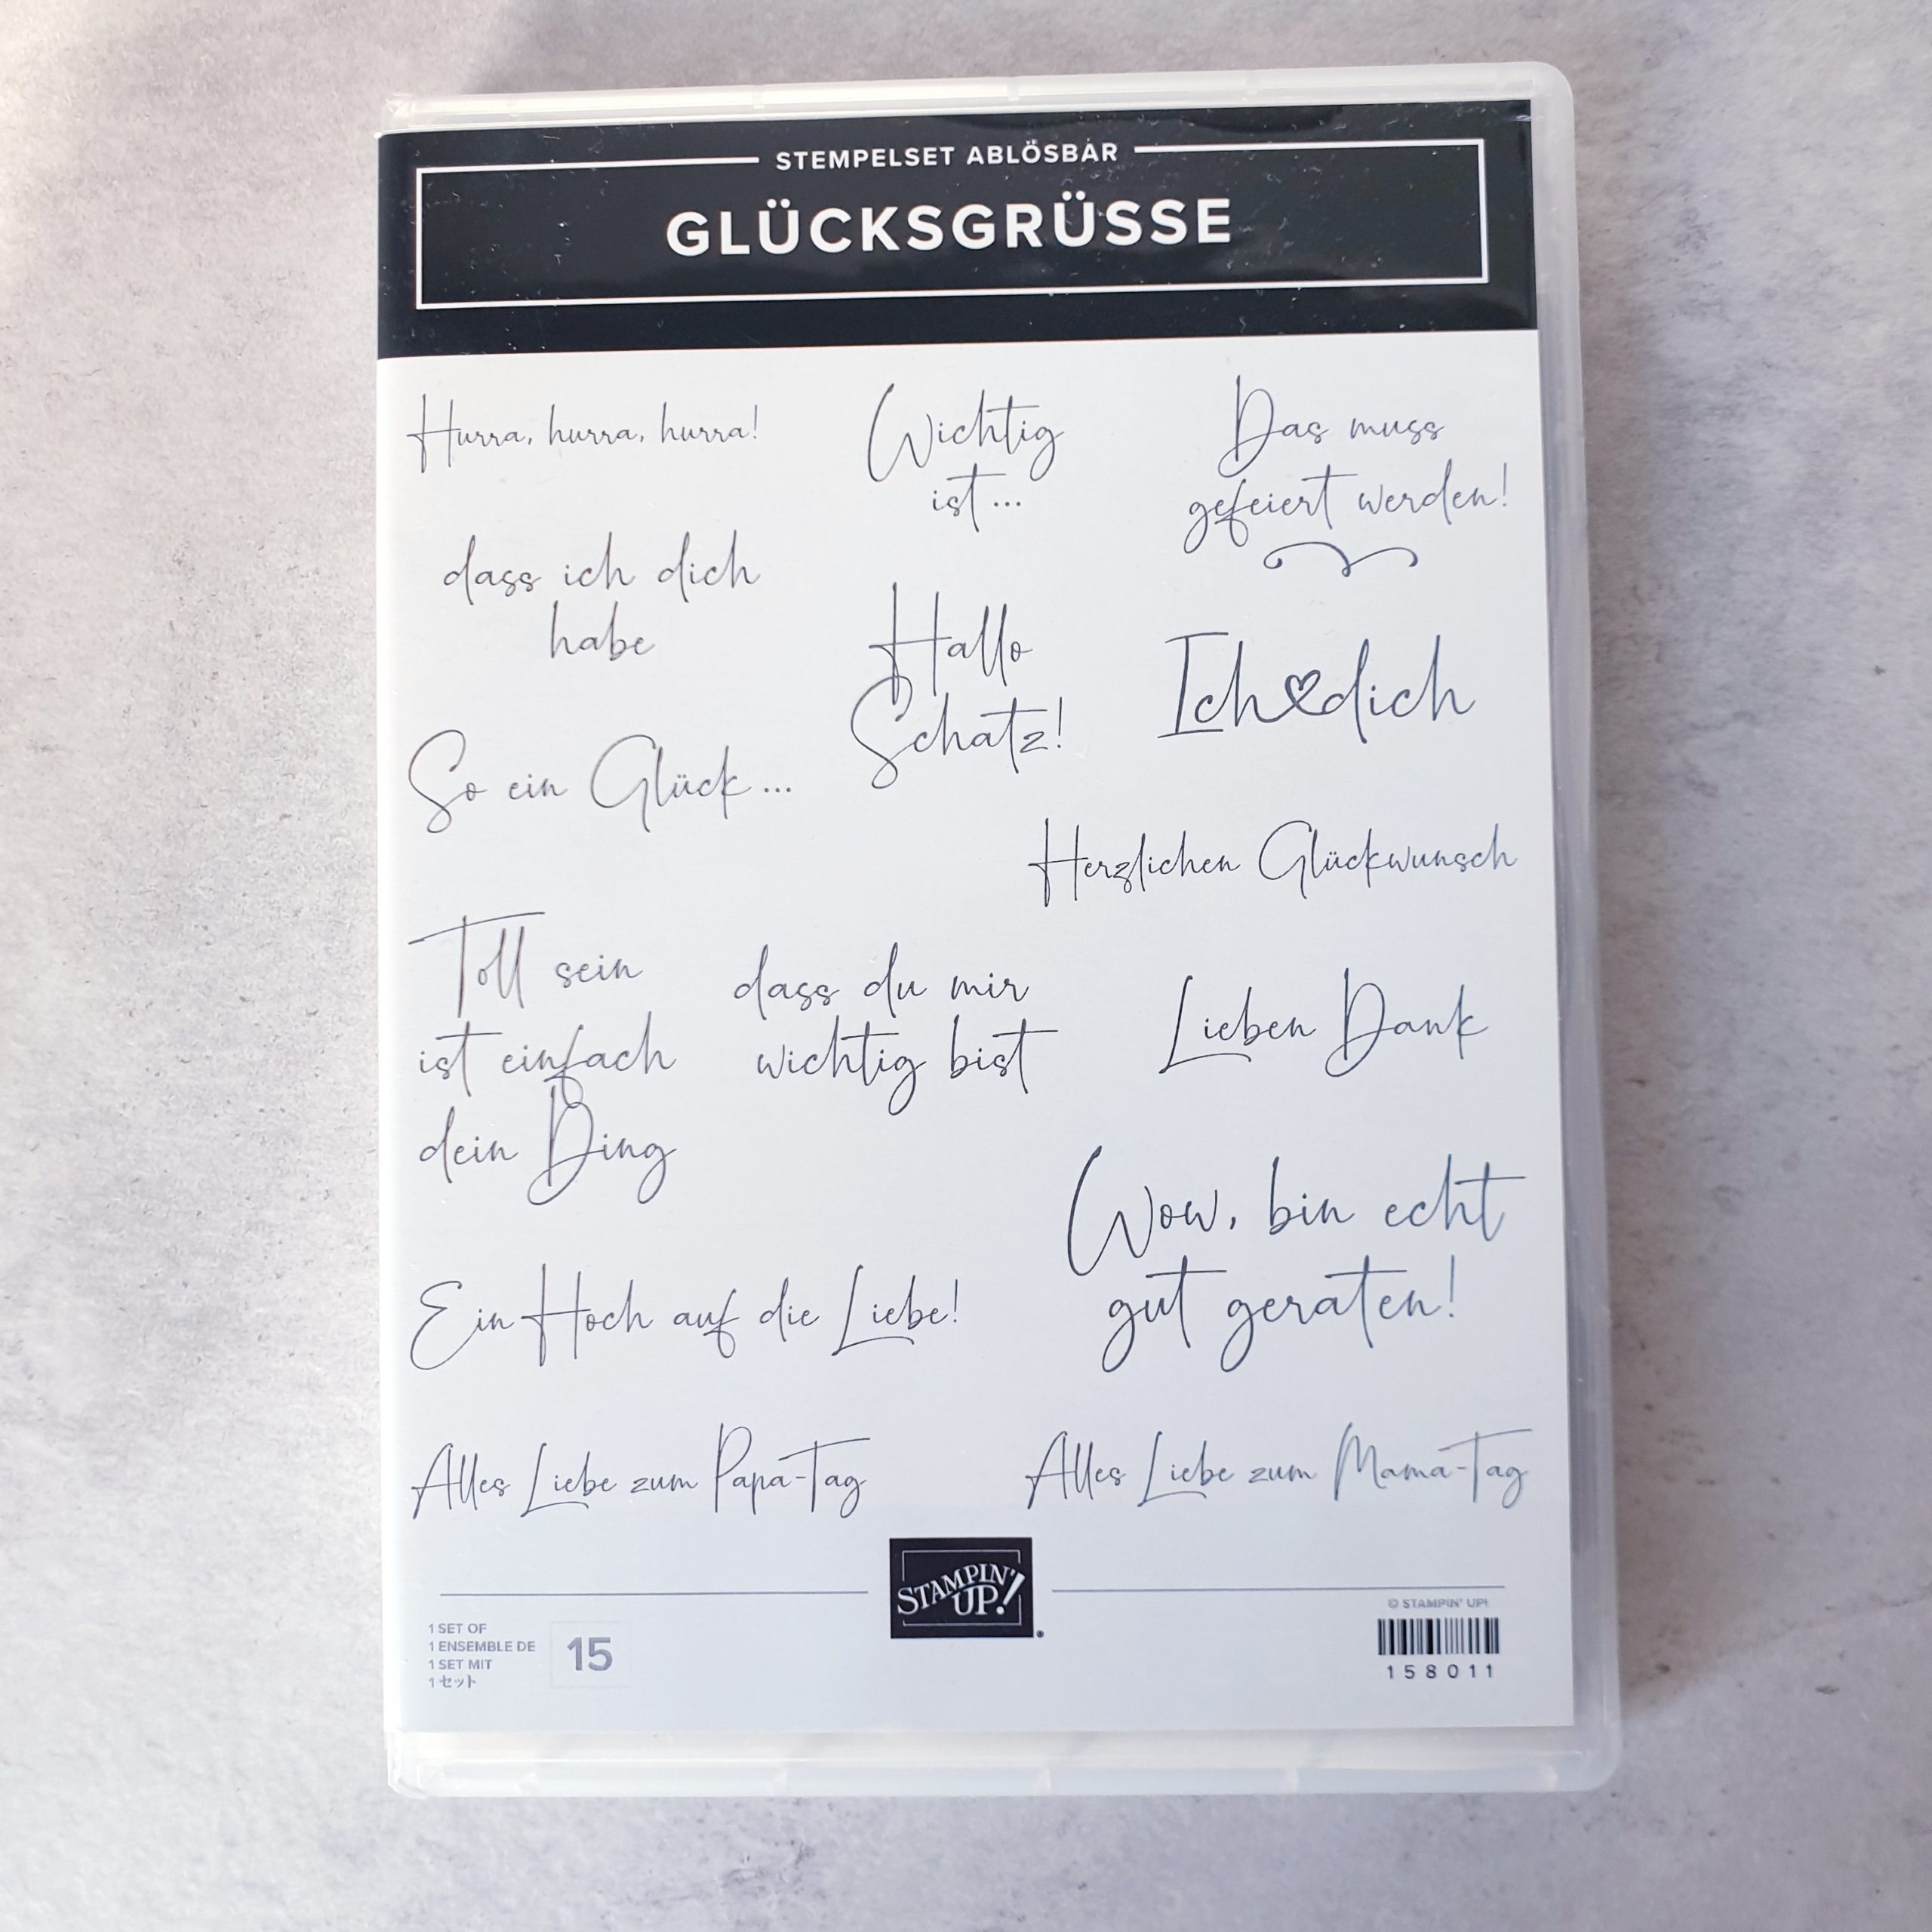 STEMPELSET ABLÖSBAR
GLÜCKSGRÜSSE
Hurra, hurra, hurra!
Wichtig
ist...
Das muss
gefeiert werden!
dass ich dich
habe
Hallo
Schatz!
Ich dich
So ein Glück...
Herzlichen Glückwunsch
Toll sein
ist einfach
dein Ding
dass du mir
wichtig bist
Lieben Dank
Wow, bin echt
gut geraten!
Ein Hoch auf die Liebe!
Alles Liebe zum Papa-Tag
Alles Liebe zum Mama-Tag
STAMPIN'
UP!
1 SET OF
1 ENSEMBLE DE
1 SET MIT
1 セット
15
© STAMPIN' UP!
158011